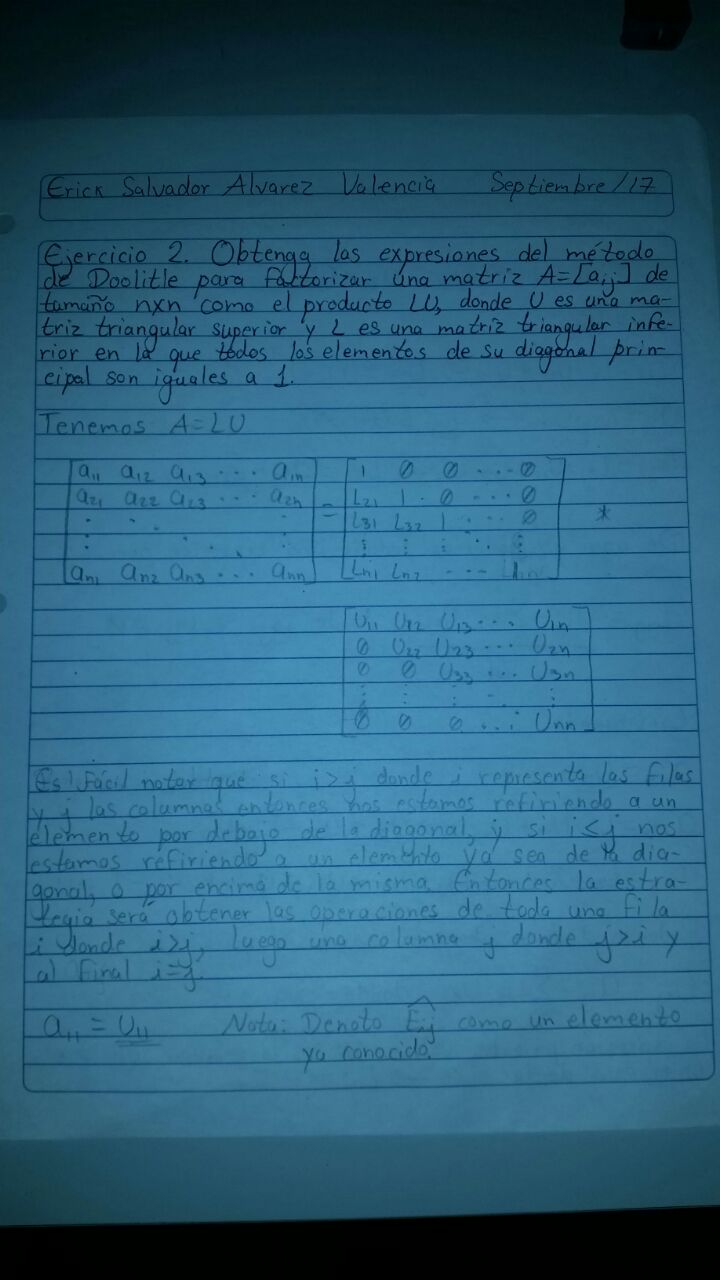 Erick Salvador Alvarez Valencia Septiembre/17
Ejercicio 2. Obtenga las expresiones del método
de Doolitle para factorizar una matriz A=[aij] de
tamaño nxn como el producto LU, donde U es una ma-
triz triangular superior y L es una matriz triangular infe-
rior en la que todos los elementos de su diagonal prin-
cipal son iguales a 1.
Tenemos A=LU
a11 a12 a13 ... a1n = 1 0 0 ... 0
a21 a22 a23 ... a2n L21 1 0 ... 0
L31 L32 1 ... 0 *
an1 an2 an3 ... ann Ln1 Ln2 ... 1
U11 U12 U13 ... U1n
0 U22 U23 ... U2n
0 0 U33 ... U3n
0 0 0 ... Unn
Es fácil notar que si i>j donde i representa las filas
y j las columnas entonces nos estamos refiriendo a un
elemento por debajo de la diagonal, y si i<j nos
estamos refiriendo a un elemento ya sea de la dia-
gonal, o por encima de la misma. Entonces la estra-
tegia será obtener las operaciones de toda una fila
i donde i>j, luego una columna j donde j>i y
al final i=j.
a11 = U11 Nota: Denoto Êij como un elemento
ya conocido.